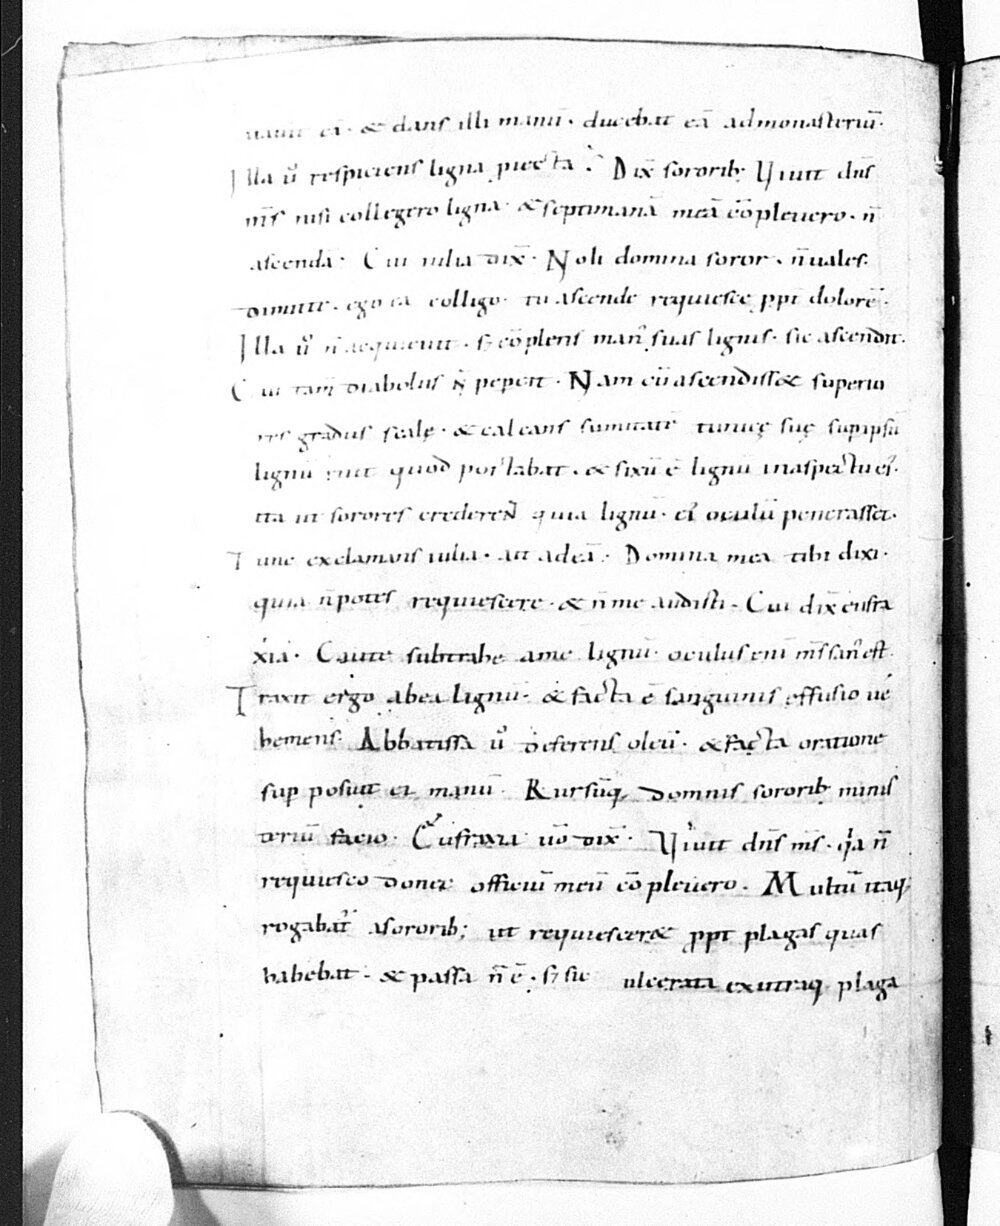 uauit eā · & dans illi manū · ducebat eā admonasteriū ·
Illa ū respiciens ligna piecta · Dix̄ sororib; Viuit dn̄s
m̄s nisi collegero ligna · & septimanā meā cōpleuero · n̄
ascendā · Cui iulia dix̄ · Noli domina soror · n̄uales
dimitte · ego ea colligo · tu ascende requiesce ppt̄ dolorē ·
Illa ū n̄ adquieuit · s; cōplens man' suas lignis · sic ascendit ·
Cui tam̄ diabolus n̄ pepcit · Nam cū ascendiss& superio
res gradus scalę · & calcans sumitatē tunicę suę sup ipsū
lignū ruit quod portabat · & fixū ē lignū inaspectu ei' ·
ita ut sorores crederent quia lignū · ei' oculū penetrasset ·
Tunc exclamans iulia · ait adeā · Domina mea tibi dixi ·
quia n̄potes requiescere · & n̄me audisti · Cui dix̄ eufra
xia · Caute subtrahe ame lignū · oculus eni m̄s san' est ·
Traxit ergo abea lignū · & facta ē sanguinis effusio ue
hemens · Abbatissa ū deferens oleū · & facta oratione
sup posuit ei manū · Rursūq; domnis sororib; minis
teriū facio · Eufraxia uō dix̄ · Viuit dn̄s m̄s · qa n̄
requiesco donec officiū meū cōpleuero · Multū itaq;
rogabat' asororib; ut requiescer& ppt plagas quas
habebat · & passa n̄ ē · s; sic ulcerata exutraq; plaga